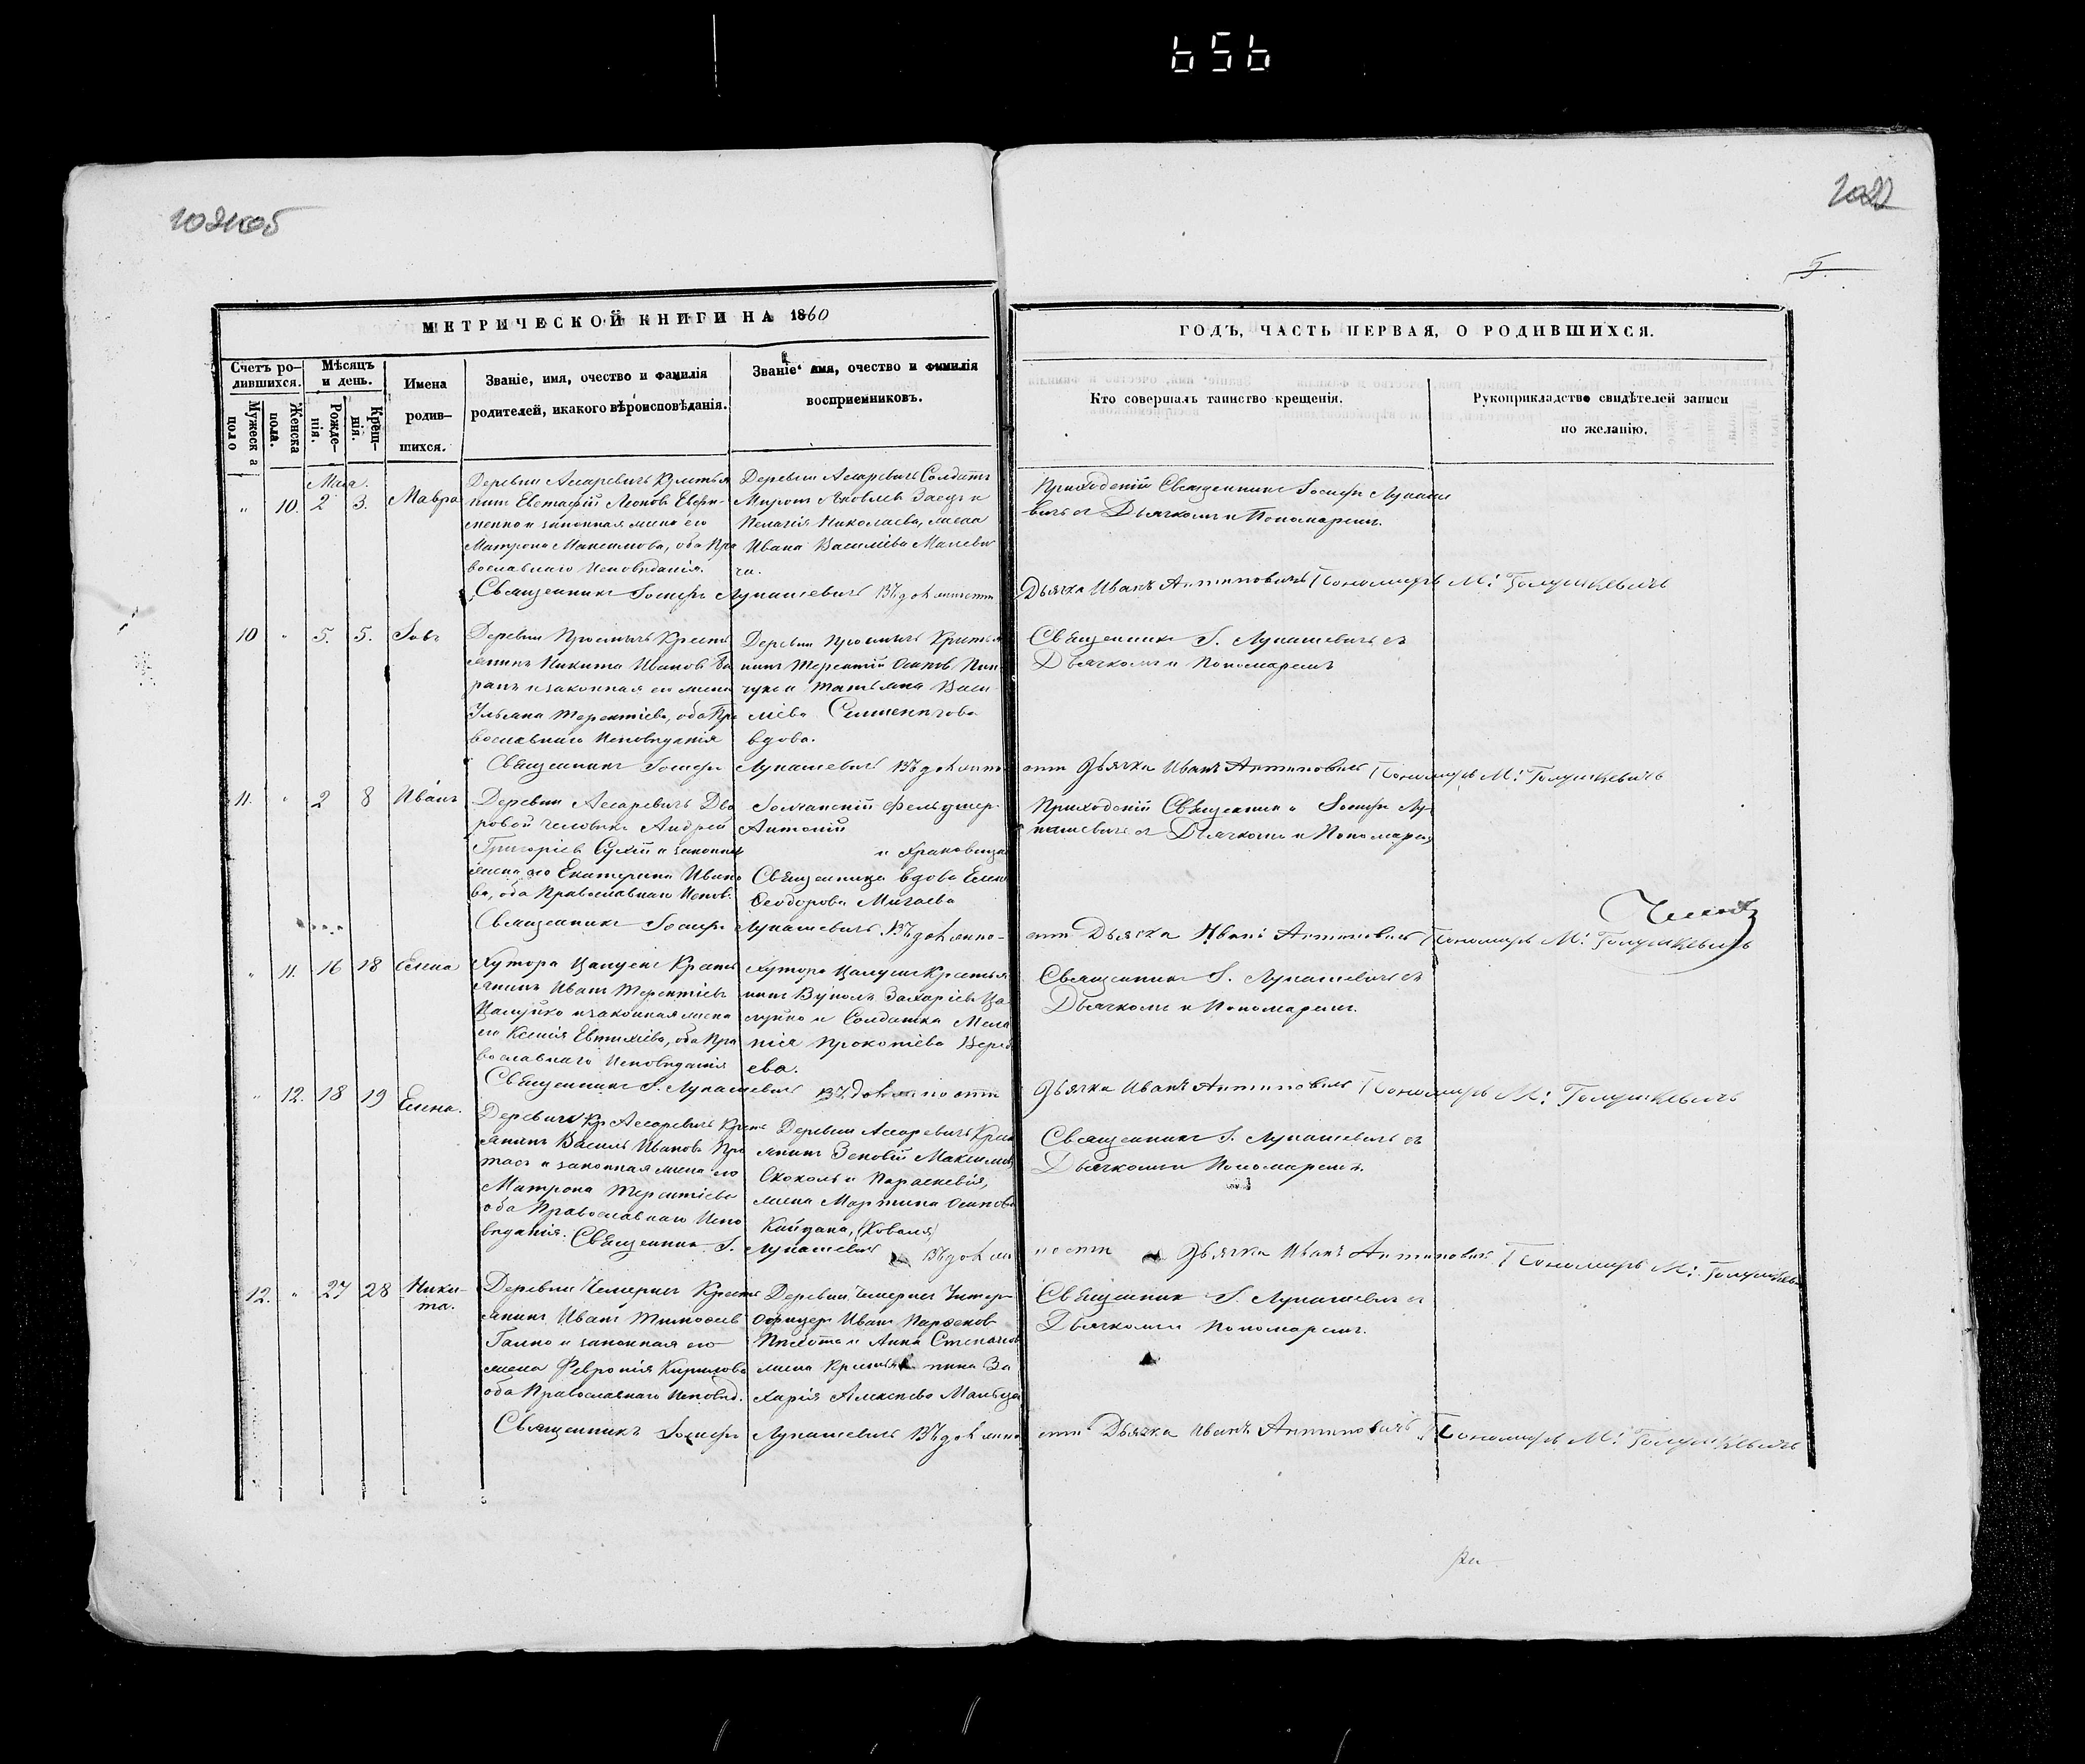 656
МЕТРИЧЕСКОЙ КНИГИ НА 1860
ГОДЪ, ЧАСТЬ ПЕРВАЯ, О РОДИВШИХСЯ.
5.
Счетъ ро-
дившихся.
Мужеска
поло
Женска
пола.
Мѣсяцъ
и день.
Рожде-
нія.
Крещ-
нія.
Имена
родив-
шихся.
Званіе, имя, очество и фамилія
родителей, икакого вѣроисповѣданія.
Званіе имя, очество и фимилія
восприемниковъ.
Кто совершалъ таинство крещенія.
Рукоприкладство свидѣтелей записи
по желанію.
Мая
" 10. 2 3. Мавра
Деревни Асаревичь Крстья
нинъ Евстафій Леоновъ
и законная жена его
Матрона Максимова, оба Пра
вославнаго Исповѣданія.
Деревни Асаревичь Солдатъ
Миронъ Яковлевъ Заецъ и
Пелагія Николаева, жена
Ивана Василіева Мацеви
ча.
Приходскій Священникъ Іосифъ Лукаше
вичь съ Дьячкомъ и Пономаремъ.
Священникъ Іосифъ Лукашевичъ Въ должности
Дьячка Иванъ Антиповичъ Пономарь М: Голушкевичъ
10 " 5. 5. Іовъ
Деревни Просмычь Кресть
янинъ Никита Ивановъ Ба
ранъ и законная его жена
Ульяна Терентіева, оба Пра
вославнаго Исповѣданія
Деревни Просмычь Крстья
нинъ Терентій Осиповъ Пин
чукъ и Татьяна Васи
ліева
вдова.
Священникъ І. Лукашевичъ съ
Дьячкомъ и Пономаремъ
Священникъ Іосифъ Лукашевичъ Въ должно
сти Дьячка Иванъ Антиповичъ Пономарь М: Голушкевичъ
11. " 2 8 Иванъ
Деревни Асаревичь Дво
ровой человѣкъ Андрей
Григоріевъ Сухій и законная
жена его Екатерина Ивано
ва, оба Православнаго Испов.
Голчанскій Фельдшер
Антоній
Священника вдова Елена
Ѳеодорова Мигаева
Приходскій Священникъ Іосифъ Лу
кашевичъ съ Дьячкомъ и Пономарем
Священникъ Іосифъ Лукашевичъ Въ должно-
сти Дьячка Иванъ Антиповичъ Пономарь М: Голушкевичъ
" 11. 16 18 Елена
Хутора Цапуекъ Кресть
янинъ Иванъ Терентіевъ
Цапуйко и законная жена
его Ксенія Евтихіева, оба Пра
вославнаго Исповѣданія
Хутора Цапуекъ Крестья
нинъ Вуколъ Захаріевъ Ца
пуйко и Солдатка Мела
нія Прокопіева
ева.
Священникъ І. Лукашевичъ съ
Дьячкомъ и Пономаремъ.
Священникъ І. Лукашевичъ Въ должности
Дьячка Иванъ Антиповичъ Пономарь М: Голушкевичъ
" 12. 18 19 Елена.
Деревни Асаревичь Кресть
янинъ Василь Ивановъ Про
тасъ и законная жена его
Матрона Терентіева
оба Православнаго Испо
вѣданія.
Деревни Асаревичь Крест
янинъ Зеновій Максимовъ
Скоколъ и Параскевія,
жена Мартина Осипова
Кайдана, (Коваля)
Священникъ І. Лукашевичъ съ
Дьячкомъ и Пономаремъ.
Священник І. Лукашевичъ Въ долж
ности Дьячка Иванъ Антиповичъ Пономарь М: Голушкеви
12. " 27 28 Ники-
та.
Деревни Чемерисъ Кресть
янинъ Иванъ Тимоѳеевъ
Галко и законная его
жена Февронія Кирилова
оба Православнаго Исповѣд.
Деревни Чемерисъ Унтер-
офицеръ Иванъ Парѳеновъ
Пѣхота и Анна Степанов
жена Крестья нина За
харія Алексѣева Мальца
Священник І. Лукашевичъ съ
Дьячкомъ и Пономаремъ.
Священникъ Іосифъ Лукашевичъ Въ должно
сти Дьячка Иванъ Антиповичъ Пономарь М: Голушкевичъ